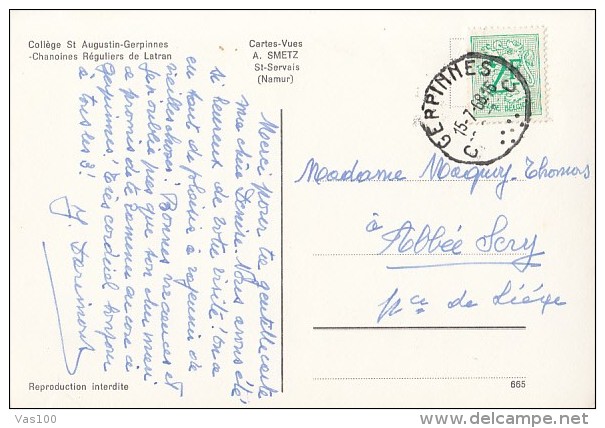 Collège St Augustin-Gerpinnes
-Chanoines Réguliers de Latran
Cartes-Vues
A. SMETZ
St-Servais
(Namur)
Merci pour ta gentille carte
ma chère Denise. Nous avons été
si heureux de votre visite! On a
eu tant de plaisir à rajeunir de
vieilles choses! Bonnes vacances et
n'oublie pas que ton cher mari
a promis de te ramener encore à
Gerpinnes! Très cordial bonjour
à tous les 3!
GERPINNES
15-7-68
C C
2F
BELGIE
Madame Maquoy-Thomas
à
Abbée Scry
Pce de Liége
Reproduction interdite
665
Vas100
www.delcampe.net